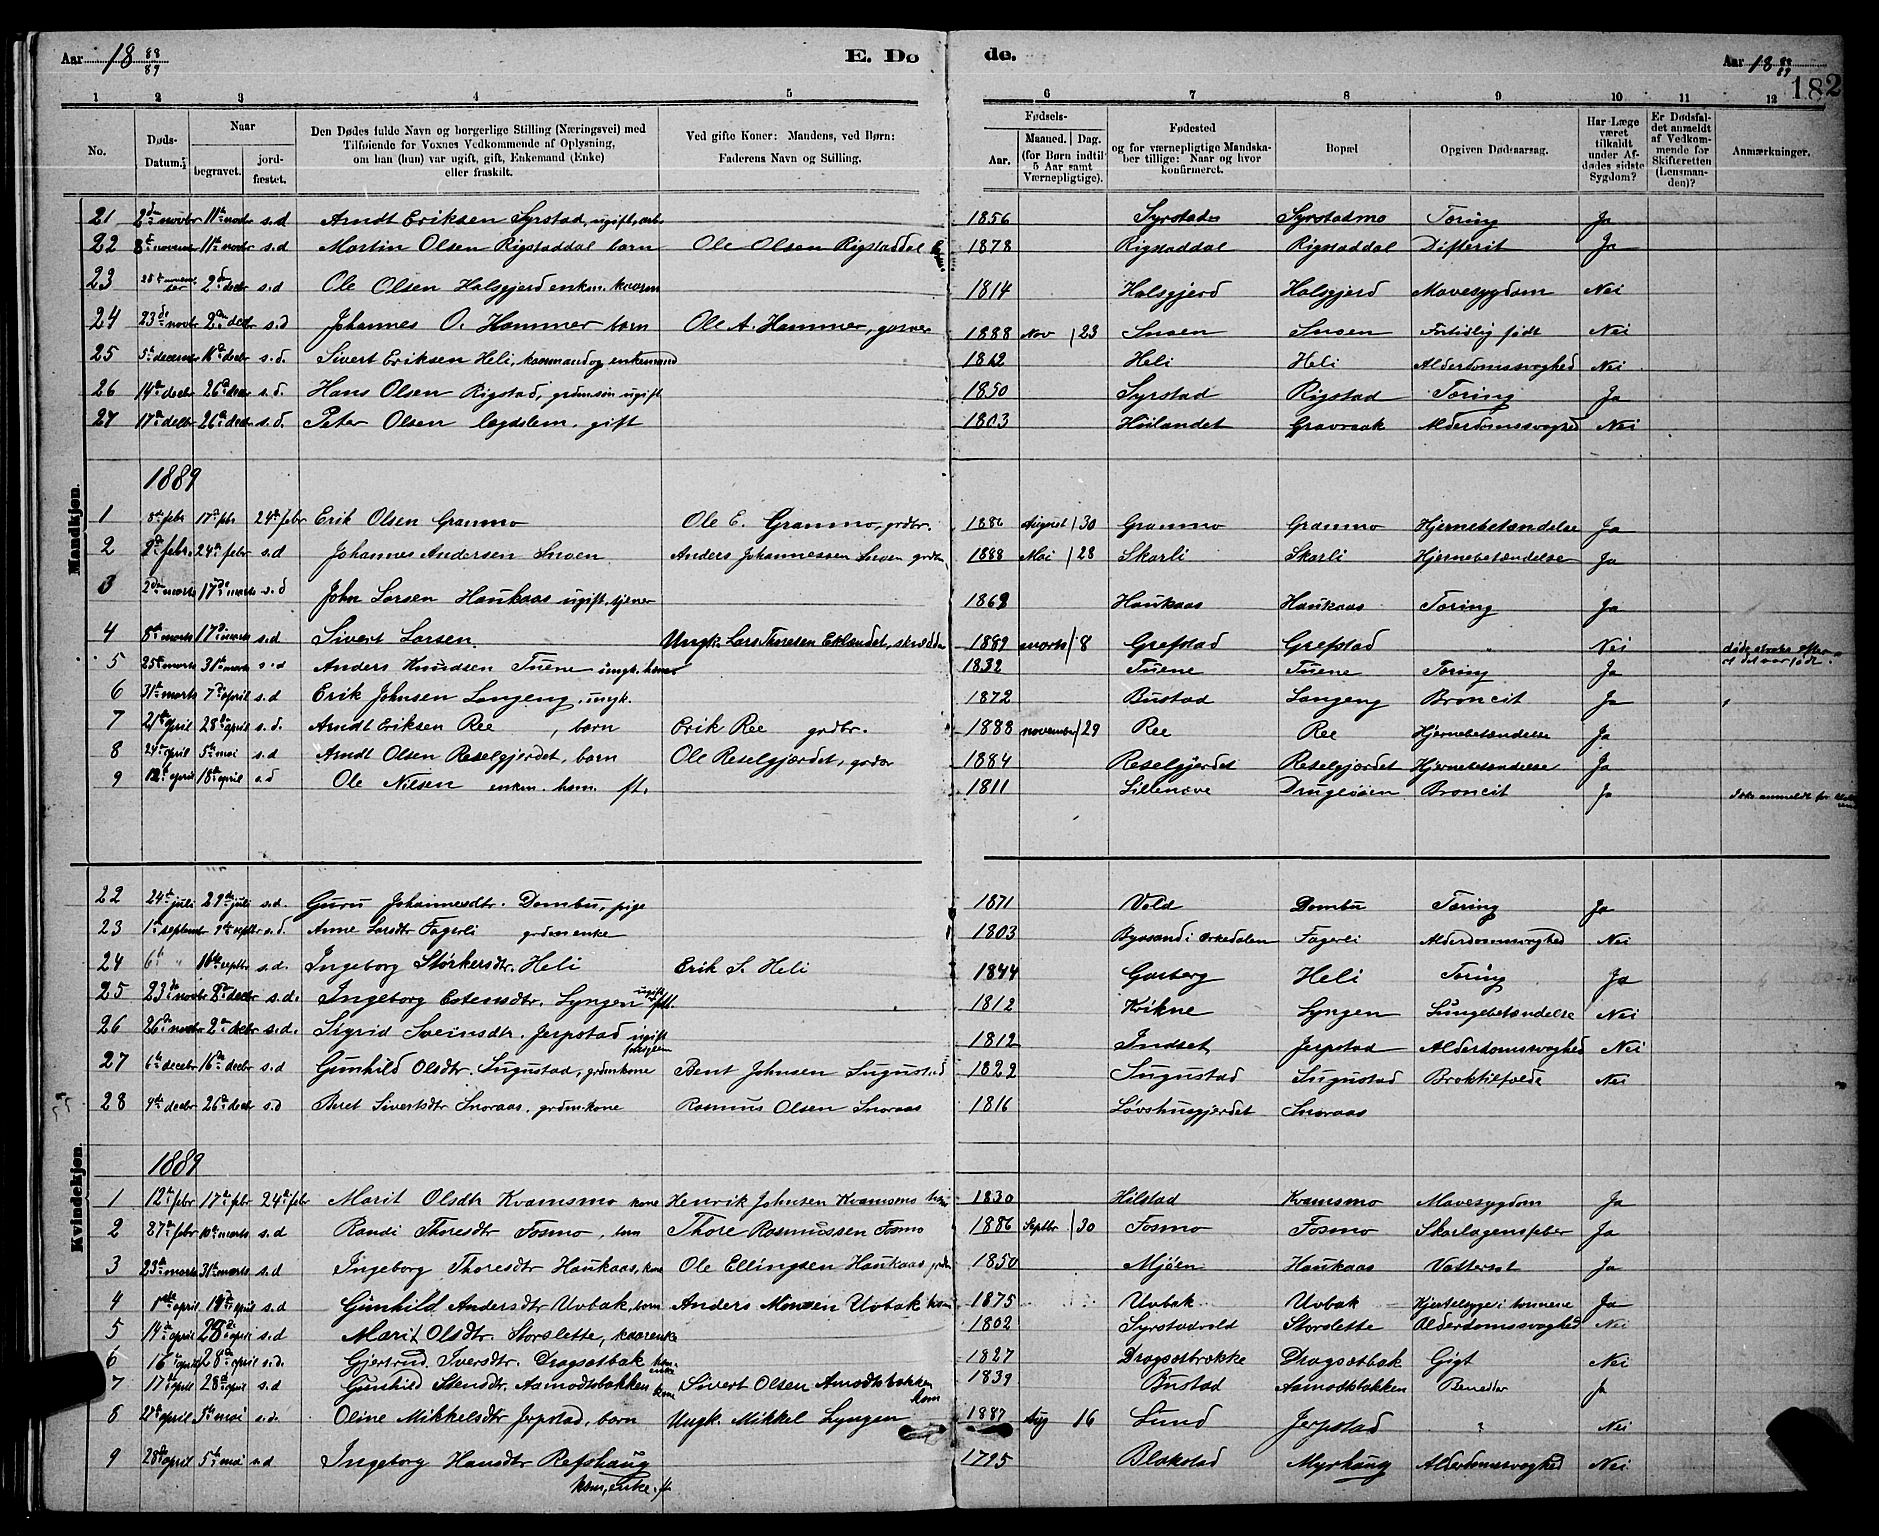 Aar 18 88/89 E. Dø
de. Aar 18 88/89
182
1 2 3 4 5 6 7 8 9 10 11 12
No. Døds-Datum. Naar begravet. jord-fæstet. Den Dødes fulde Navn og borgerlige Stilling (Næringsvei) med Tilføiende for Voxnes Vedkommende af Oplysning, om han (hun) var ugift, gift, Enkemand (Enke) eller fraskilt. Ved gifte Koner: Mandens, ved Børn: Faderens Navn og Stilling. Fødsels- Aar. Maaned. Dag. (for Børn indtil 5 Aar samt Værnepligtige). Fødested og for værnepligtige Mandskaber tillige: Naar og hvor konfirmeret. Bopæl Opgiven Dødsaarsag. Har Læge været tilkaldt under Afdødes sidste Sygdom? Er Dødsfaldet anmeldt af Vedkommende for Skifteretten (Lensmanden)? Anmærkninger.
Mandkjøn.
21 2den novbr 11te novbr s.d Arndt Eriksen Syrstad, ugift, arb 1856 Syrstad Syrstadmo Tæring Ja
22 8de novbr 11te novbr s.d Martin Olsen Rigstaddal barn Ole Olsen Rigstaddal 1878 Rigstaddal Rigstaddal Difterit Ja
23 2den decbr s.d Ole Olsen Halsgjerd enkm. kaarm 1814 Halsgjerd Halsgjerd Mavesygdom Nei
24 23de novbr 2den decbr s.d Johannes O. Hammer barn Ole A. Hammer, garver 1888 Nov 23 Snoen Snoen Fortidlig født Nei
25 5te decembr 16de decbr s.d. Sivert Eriksen Heli, kaarmand og enkemand 1812 Heli Heli Alderdomssvaghed Nei
26 14de decbr 26de decbr s.d. Hans Olsen Rigstad, grdmsøn ugift 1850 Syrstad Rigstad Tæring Ja
27 17de decbr 26de decbr s.d. Peter Olsen lægdslem, gift 1803 Høilandet Gravraak Alderdomssvaghed Nei
1889
1 8de febr 17de febr 24de febr Erik Olsen Granmo Ole E. Granmo, grdbr. 1886 August 30 Granmo Granmo Hjernebetændelse Ja
2 9de febr. 24de febr s.d Johannes Andersen Snoen Anders Johannessen Snoen grdbr 1888 Mai 28 Skarli Skarli Hjernebetændelse Ja
3 2den marts 17de marts s.d John Larsen Haukaas ugift, tjener 1862 Haukaas Haukaas Tæring Ja
4 8de marts 17de marts s.d Sivert Larsen Ungk. Lars Thoresen Eklandet, skrædder 1889 marts 8 Grefstad Grefstad " Nei døde strax efter at det var født.
5 25de marts 31te marts s.d Anders Knudsen Tuene ungk. 1832 Tuene Tuene Tæring Ja
6 31te marts 7de april s.d Erik Johnsen Langeng, ungk. 1872 Bustad Langeng Broncit Ja
7 21de april 28de april s.d. Arndt Eriksen Ree, barn Erik Ree grdbr. 1888 november 29 Ree Ree Hjernebetændelse Ja
8 24de april 5te mai s.d Arndt Olsen Reselgjerdet, barn Ole Reselgjærdet, grdbr 1884 Reselgjerdet Reselgjærdet Hjernebetændelse Ja
9 12te april 18de april s.d Ole Nilsen enkm. hsm. ft. 1811 Lillenæve Drugeøien Broncit Ja Ikke anmeldt for
Kvindekjøn.
22 24de juli 29de juli s.d. Guru Johannesdtr. Dombu, pige 1871 Vold Dombu Tæring Ja
23 1te septembr 9de septbr s.d. Anne Larsdtr Fagerli grdmenke 1803 Byasand i Orkedalen Fagerli Alderdomssvaghed Nei
24 6te " 16de septbr s.d. Ingeborg Størkersdtr. Heli Erik S. Heli 1844 Garberg Heli Tæring Ja
25 23de novbr 2den decbr s.d. Ingeborg Estensdtr. Lyngen ugift ftl. 1812 Kvikne Lyngen Lungebetændelse Nei
26 26de novbr 2den decbr s.d. Sigrid Sveinsdtr. Jerpstad ugift 1812 Indset Jerpstad Alderdomssvaghed Nei
27 6te decbr 16de decbr s.d Gunhild Olsdtr. Sugustad, grdmkone Bent Johnsen Sugustad 1822 Sugustad Sugustad Broktilfælde Nei
28 9de decbr 26de decbr s.d Beret Sivertsdtr Snoraas, grdmkone Rasmus Olsen Snoraas 1816 Løvshusgjerdet Snoraas
1889
1 12te febr 17de febr 24de febr Marit Olsdtr Kvamsmo kone Henrik Johnsen Kvamsmo hsm 1830 Hilstad Kvamsmo Mavesygdom Ja
2 27de febr 10de marts s.d Randi Thoresdtr Fosmo, barn Thore Rasmussen Fosmo 1886 Septbr 30 Fosmo Fosmo Skarlagensfeber Ja
3 23de marts 31te marts s.d Ingeborg Thoresdtr Haukaas, kone Ole Ellingsen Haukaas grdbr 1850 Mjøen Haukaas Vattersot Ja
4 1ste april 14de april s.d Gunhild Andersdtr Uvbak, barn Anders Monsen Uvbak hsm 1875 Uvbak Uvbak Kjertelsyge i tarmene Ja
5 14de april 28de april s.d Marit Olsdtr. Storslette, kaarenke 1802 Syrstadvold Storslette Alderdomssvaghed Nei
6 16de april 28de april s.d. Gjertrud Iversdtr. Dragsetbak hsm. enke 1827 Dragsetbrække Dragsetbak Gigt Nei
7 17de april 28de april s.d Gunhild Stensdtr. Aamodtsbakken kone Sivert Olsen Amodtsbakken hsm 1839 Bustad Aamodtsbakken Ja
8 21de april 5te mai s.d. Oline Mikkelsdtr Jerpstad, barn Ungk. Mikkel Lyngen 1887 Aug 16 Lund Jerpstad " Nei
9 28de april 5te mai s.d Ingeborg Hansdtr Refshaug ksm. enke. ft. 1795 Blakstad Myrhaug Alderdomssvaghed Nei